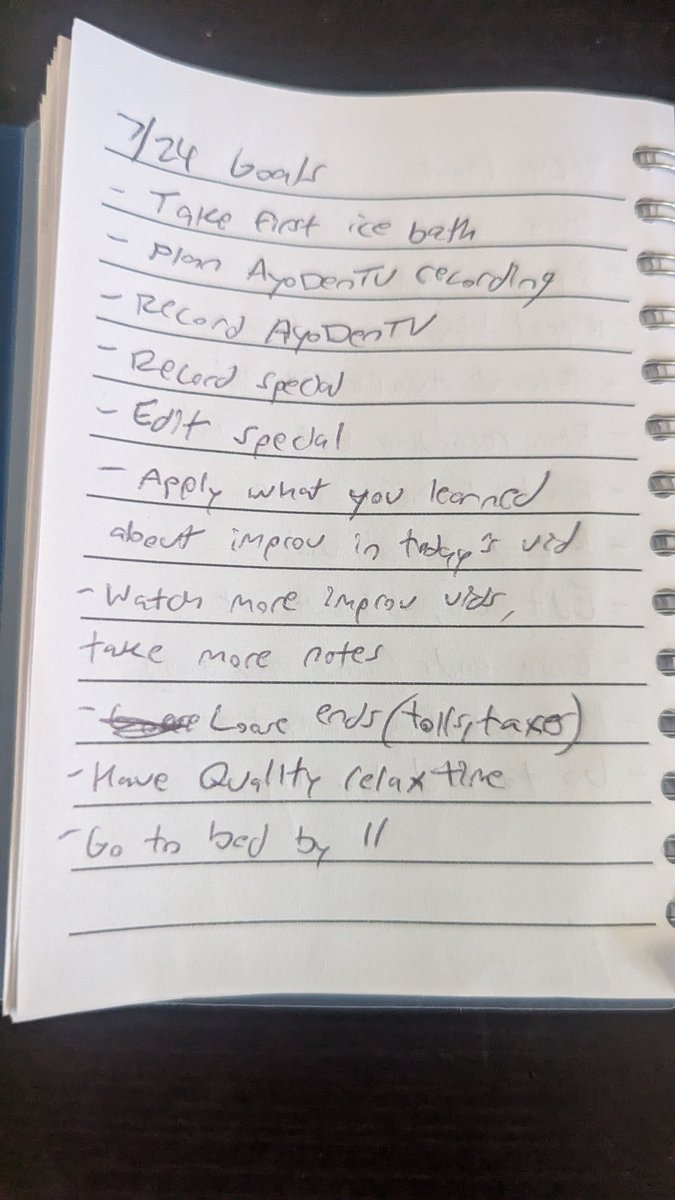 7/24 Goals
- Take first ice bath
- Plan AyoDenTV recording
- Record AyoDenTV
- Record special
- Edit special
- Apply what you learned
about improv in today's vid
- Watch more improv vids,
take more notes
- Loose ends (tolls, taxes)
- Have Quality relax time
- Go to bed by 11